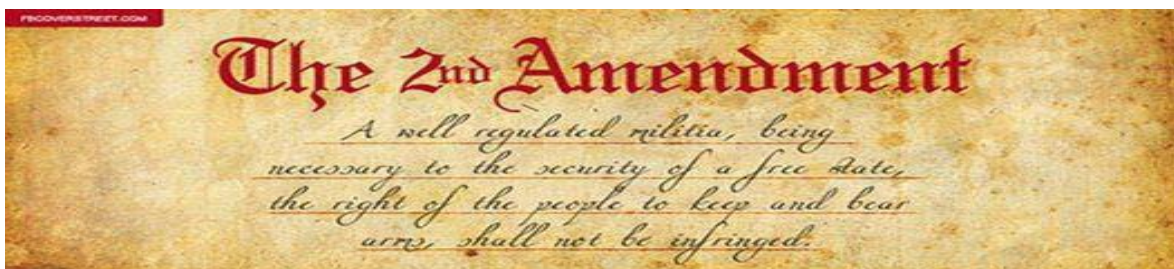 FBCOVERSTREET.COM
The 2nd Amendment
A well regulated militia, being
necessary to the security of a free state,
the right of the people to keep and bear
arms, shall not be infringed.